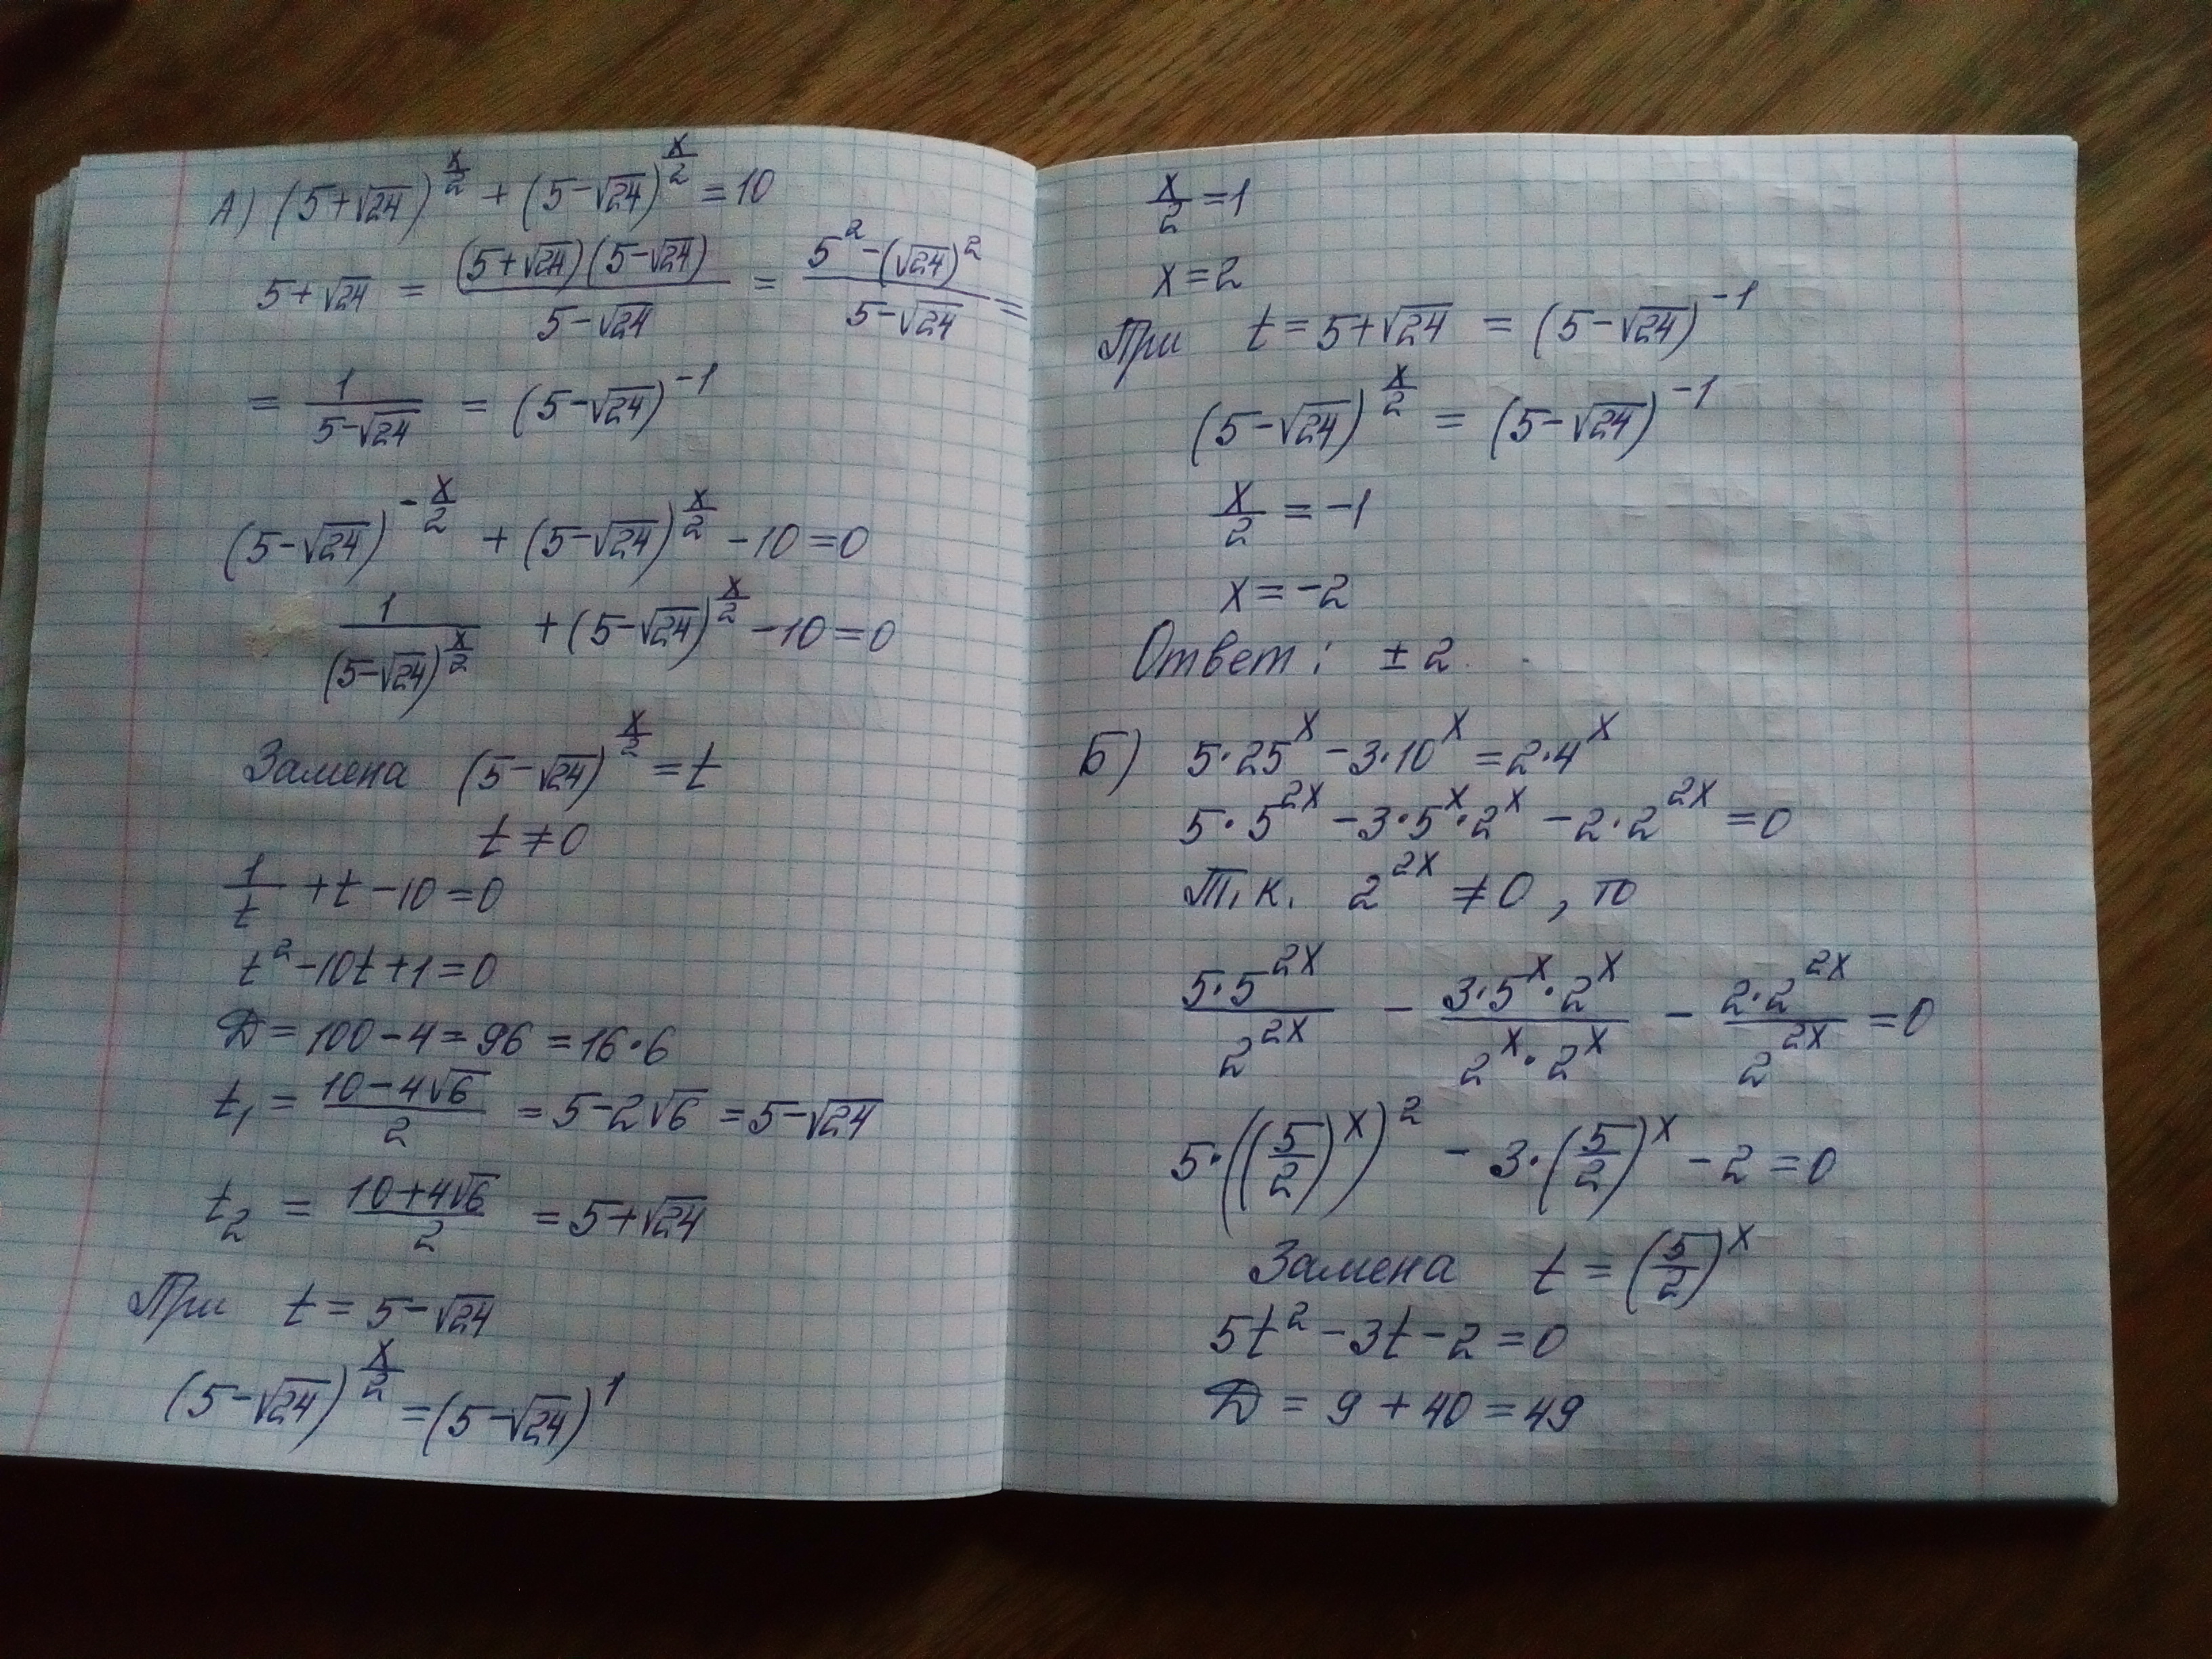 А) (5+√24)^(x/2) + (5-√24)^(x/2) = 10
5+√24 = ((5+√24)(5-√24))/(5-√24) = (5^2-(√24)^2)/(5-√24) =
= 1/(5-√24) = (5-√24)^(-1)
(5-√24)^(-x/2) + (5-√24)^(x/2) -10=0
1/((5-√24)^(x/2)) + (5-√24)^(x/2) -10=0
Замена (5-√24)^(x/2) = t
t ≠ 0
1/t + t - 10 = 0
t^2 - 10t + 1 = 0
Д = 100 - 4 = 96 = 16·6
t_1 = (10-4√6)/2 = 5-2√6 = 5-√24
t_2 = (10+4√6)/2 = 5+√24
При t = 5-√24
(5-√24)^(x/2) = (5-√24)^1
x/2 = 1
x = 2
При t = 5+√24 = (5-√24)^(-1)
(5-√24)^(x/2) = (5-√24)^(-1)
x/2 = -1
x = -2
Ответ: ±2.
Б) 5·25^x - 3·10^x = 2·4^x
5·5^(2x) - 3·5^x·2^x - 2·2^(2x) = 0
Т.к. 2^(2x) ≠ 0, то
(5·5^(2x))/(2^(2x)) - (3·5^x·2^x)/(2^x·2^x) - (2·2^(2x))/(2^(2x)) = 0
5·((5/2)^x)^2 - 3·(5/2)^x - 2 = 0
Замена t = (5/2)^x
5t^2 - 3t - 2 = 0
Д = 9 + 40 = 49